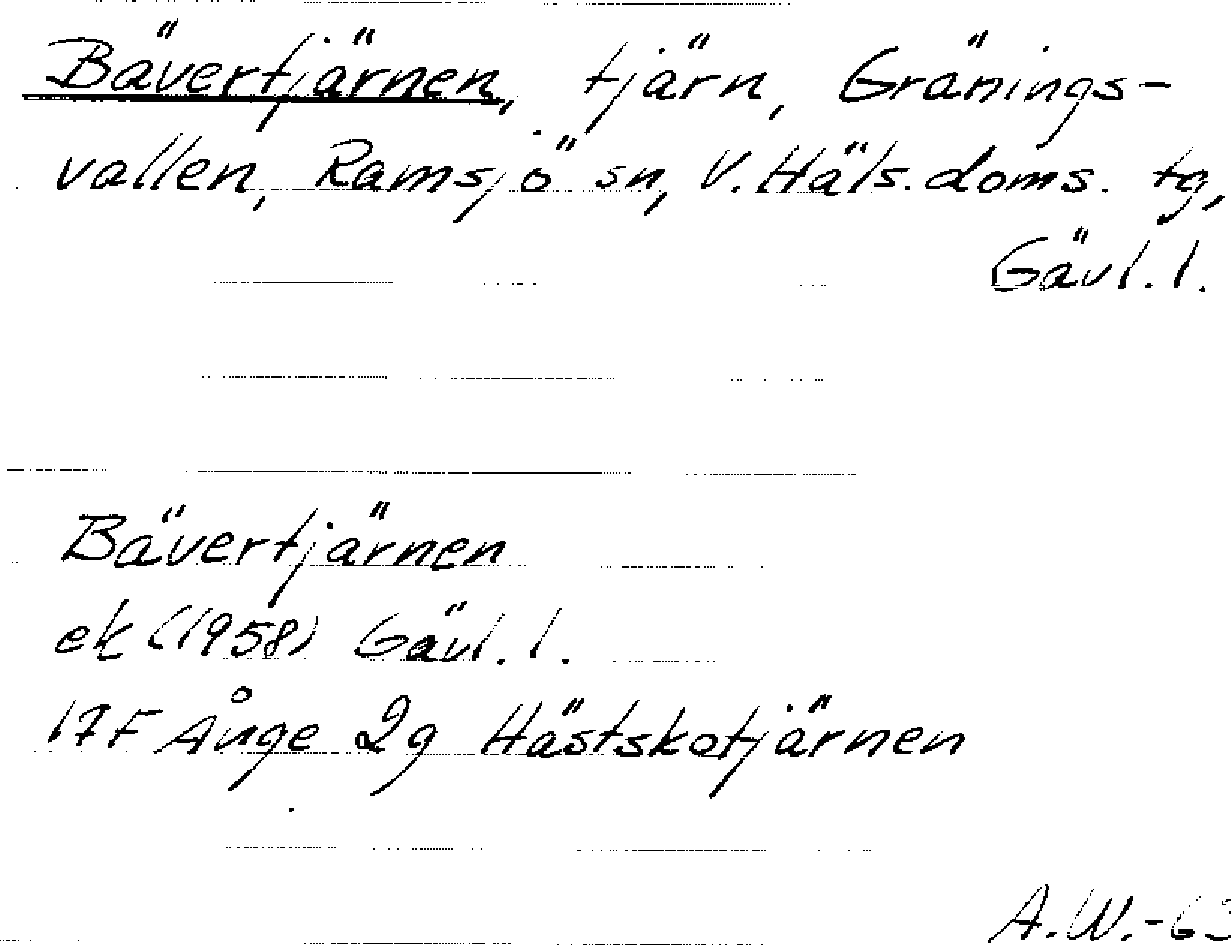 Bävertjärnen, tjärn, Gränings-
vallen, Ramsjö sn, V. Häls. doms. tg,
Gävl. l.
Bävertjärnen
ek (1958) Gävl. l.
17F Ånge 2g Hästskotjärnen
A.W.-63